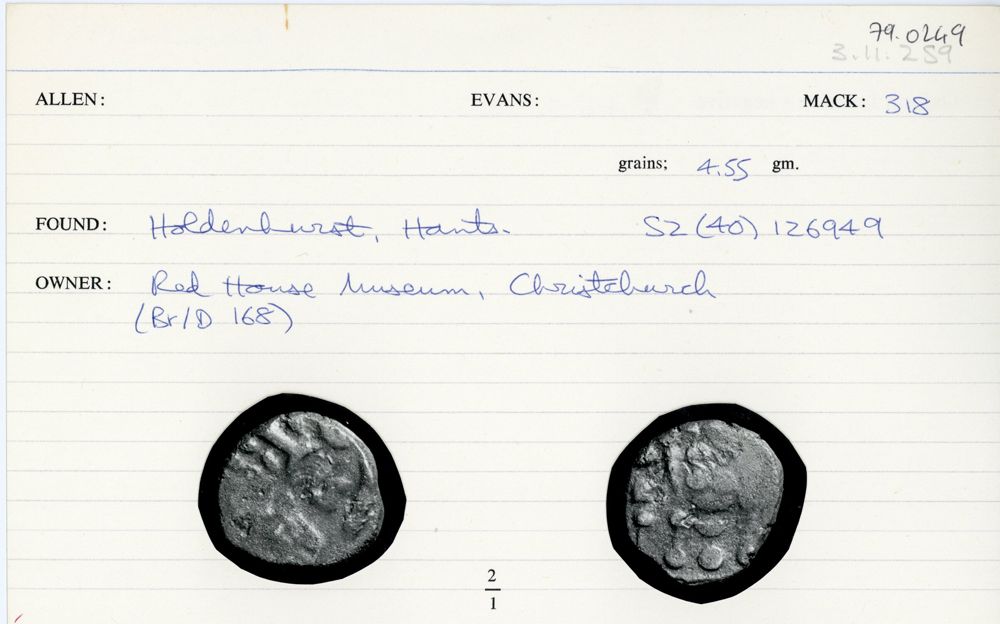 79.0249
3.11.259
ALLEN: EVANS: MACK: 318
grains; 4.55 gm.
FOUND: Holdenhurst, Hants. SZ (40) 126949
OWNER: Red House Museum, Christchurch
(Br/D 168)
2
1